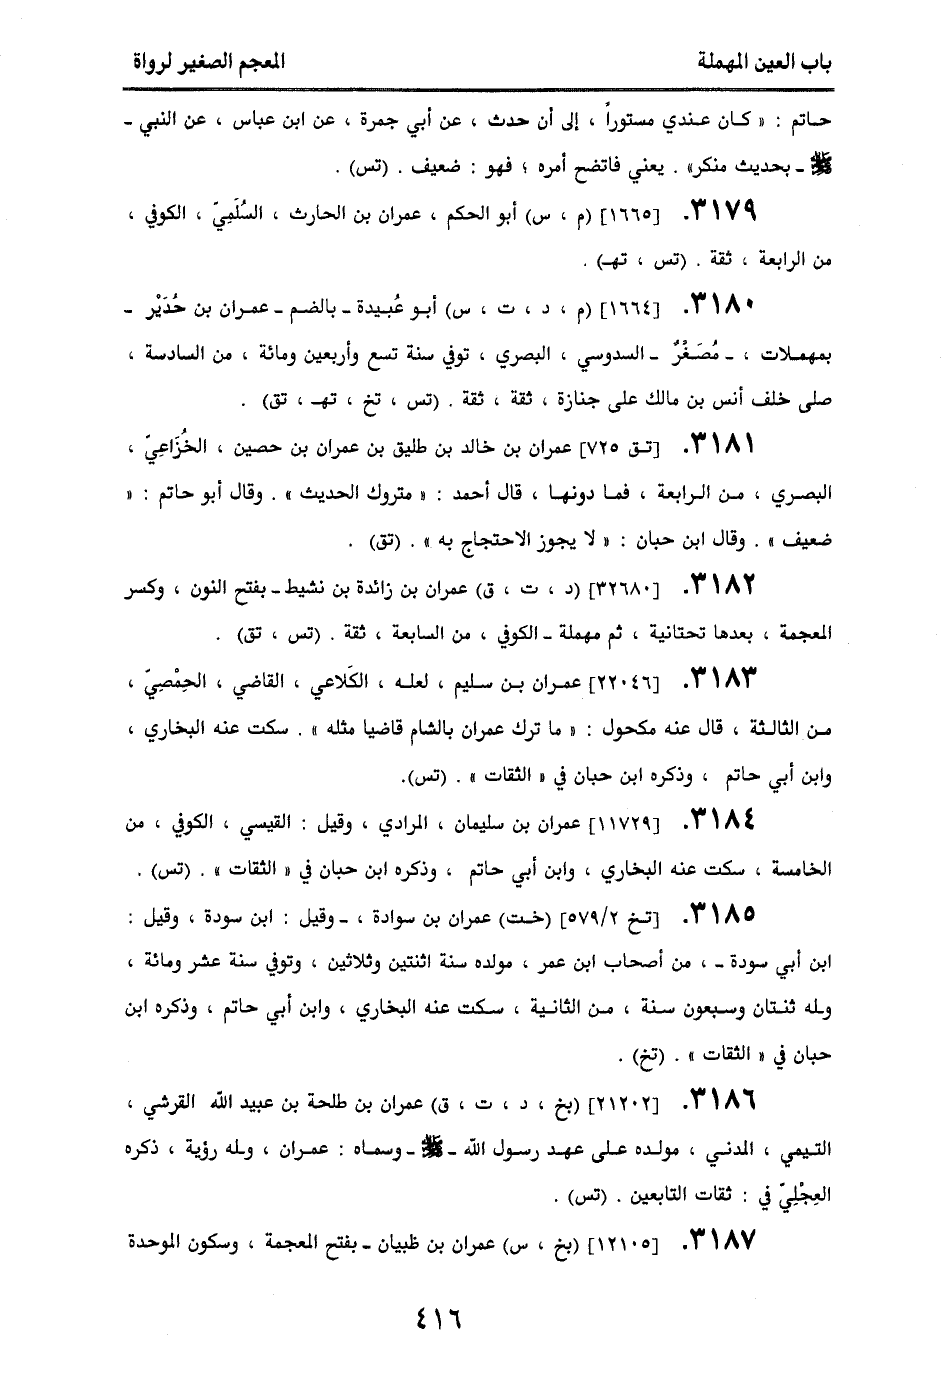 باب العين المهملة
المعجم الصغير لرواة
حاتم : « كان عندي مستوراً ، إلى أن حدث ، عن أبي جمرة ، عن ابن عباس ، عن النبي ـ
ﷺ ـ بحديث منكر» . يعني فاتضح أمره ؛ فهو : ضعيف . (تس) .
٣١٧٩. [١٦٦٥] (م ، س) أبو الحكم ، عمران بن الحارث ، السُلَمِيّ ، الكوفي ،
من الرابعة ، ثقة . (تس ، تهـ) .
٣١٨٠. [١٦٦٤] (م ، د ، ت ، س) أبو عُبيدة ـ بالضم ـ عمران بن حُدَيْر ـ
بمهملات ، ـ مُصَغْرٌ ـ السدوسي ، البصري ، توفي سنة تسع وأربعين ومائة ، من السادسة ،
صلى خلف أنس بن مالك على جنازة ، ثقة ، ثقة . (تس ، تخ ، تهـ ، تق) .
٣١٨١. [تق ٧٢٥] عمران بن خالد بن طليق بن عمران بن حصين ، الخُزَاعِيّ ،
البصري ، من الرابعة ، فما دونها ، قال أحمد : « متروك الحديث » . وقال أبو حاتم : «
ضعيف » . وقال ابن حبان : « لا يجوز الاحتجاج به » . (تق) .
٣١٨٢. [٣٢٦٨٠] (د ، ت ، ق) عمران بن زائدة بن نشيط ـ بفتح النون ، وكسر
المعجمة ، بعدها تحتانية ، ثم مهملة ـ الكوفي ، من السابعة ، ثقة . (تس ، تق) .
٣١٨٣. [٢٢٠٤٦] عمران بن سليم ، لعله ، الكَلاعي ، القاضي ، الحِمْصِيّ ،
من الثالثة ، قال عنه مكحول : « ما ترك عمران بالشام قاضيا مثله » . سكت عنه البخاري ،
وابن أبي حاتم ، وذكره ابن حبان في « الثقات » . (تس).
٣١٨٤. [١١٧٢٩] عمران بن سليمان ، المرادي ، وقيل : القيسي ، الكوفي ، من
الخامسة ، سكت عنه البخاري ، وابن أبي حاتم ، وذكره ابن حبان في « الثقات » . (تس) .
٣١٨٥. [تخ ٥٧٩/٢] (خت) عمران بن سوادة ، ـ وقيل : ابن سودة ، وقيل :
ابن أبي سودة ـ ، من أصحاب ابن عمر ، مولده سنة اثنتين وثلاثين ، وتوفي سنة عشر ومائة ،
وله ثنتان وسبعون سنة ، من الثانية ، سكت عنه البخاري ، وابن أبي حاتم ، وذكره ابن
حبان في « الثقات » . (تخ) .
٣١٨٦. [٢١٢٠٢] (بخ ، د ، ت ، ق) عمران بن طلحة بن عبيد الله القرشي ،
التيمي ، المدني ، مولده على عهد رسول الله ـ ﷺ ـ وسماه : عمران ، وله رؤية ، ذكره
العِجْلِيّ في : ثقات التابعين . (تس) .
٣١٨٧. [١٢١٠٥] (بخ ، س) عمران بن ظبيان ـ بفتح المعجمة ، وسكون الموحدة
٤١٦